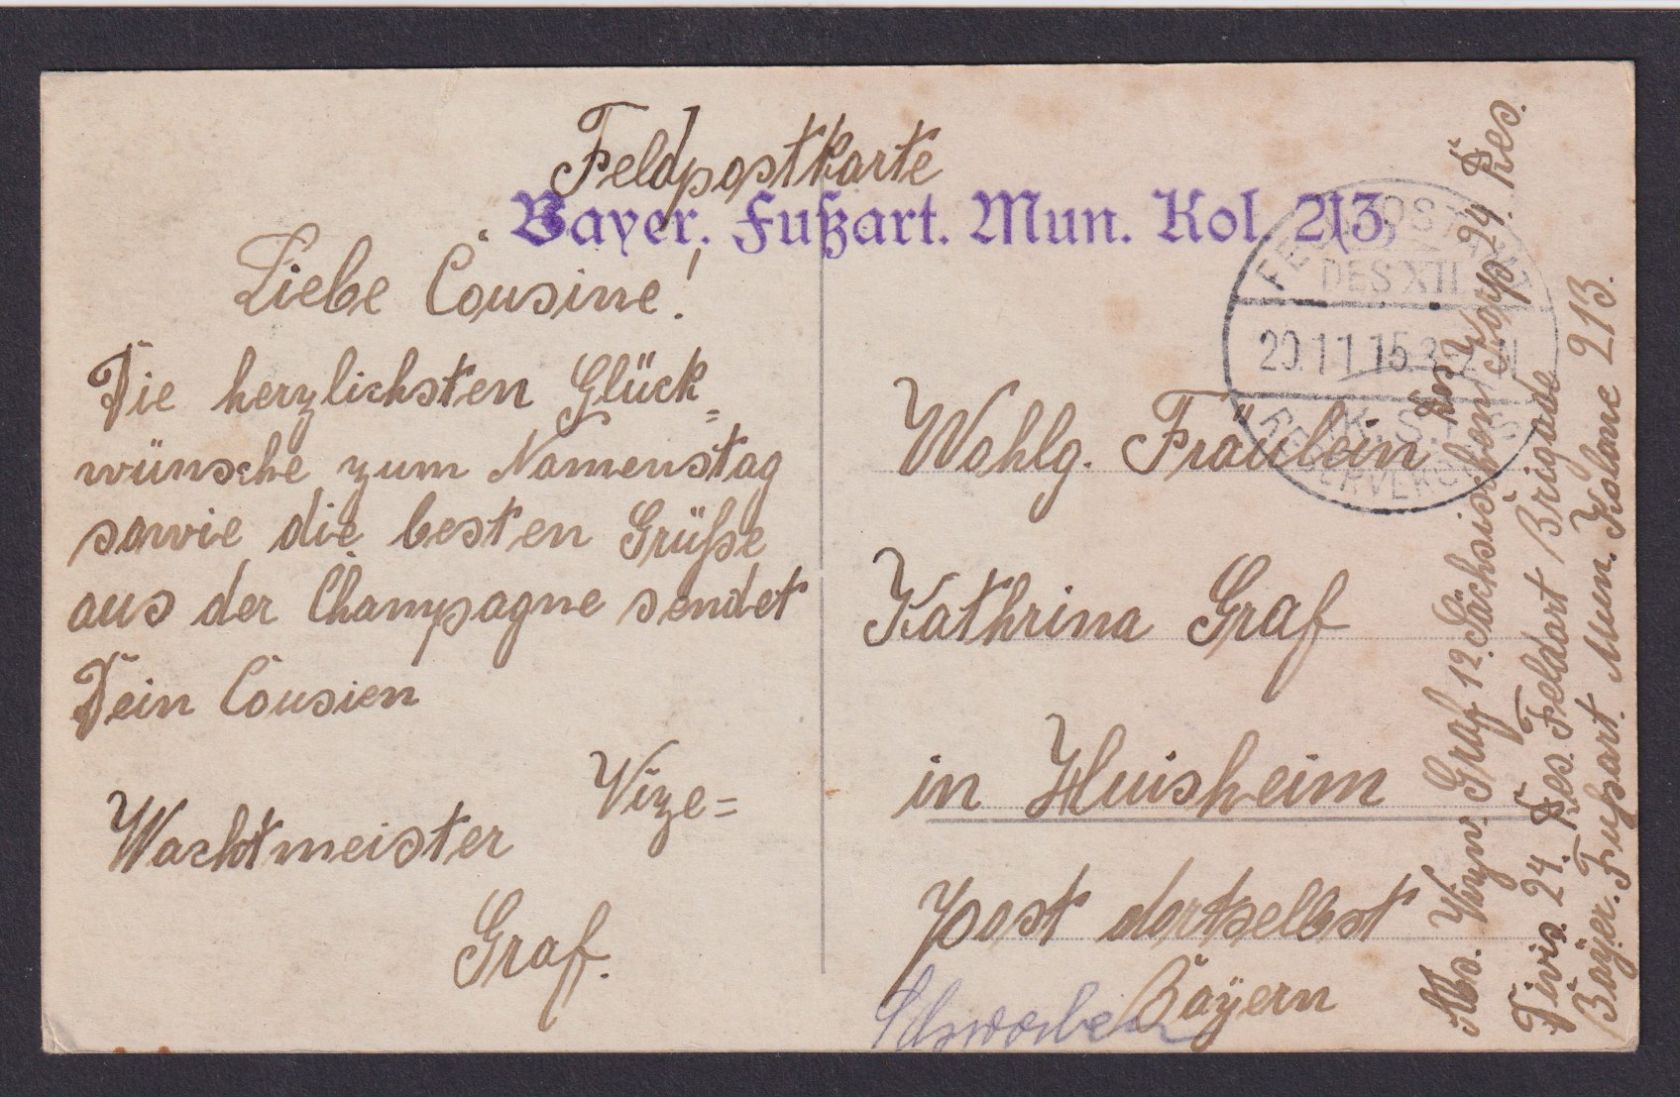 Feldpostkarte
Bayer. Fußart. Mun. Kol. 213,
Liebe Cousine!
Die herzlichsten Glück-
wünsche zum Namenstag
sowie die besten Grüße
aus der Champagne sendet
Dein Cousien
Vize=
Wachtmeister
Graf.
FELDPOSTAMT
DES XII.
20.11.15.
K.S.
RESERVEKORPS
Wohlg. Fräulein
Kathrina Graf
in Huisheim
post dortselbst
Bayern
Schwaben
Abs. Vizew. Graf 12. Sächsischen Res. Korps 24. Res.
Divis. 24. Res. Feldart Brigade
Bayer. Fußart. Mun. Kolone 213.